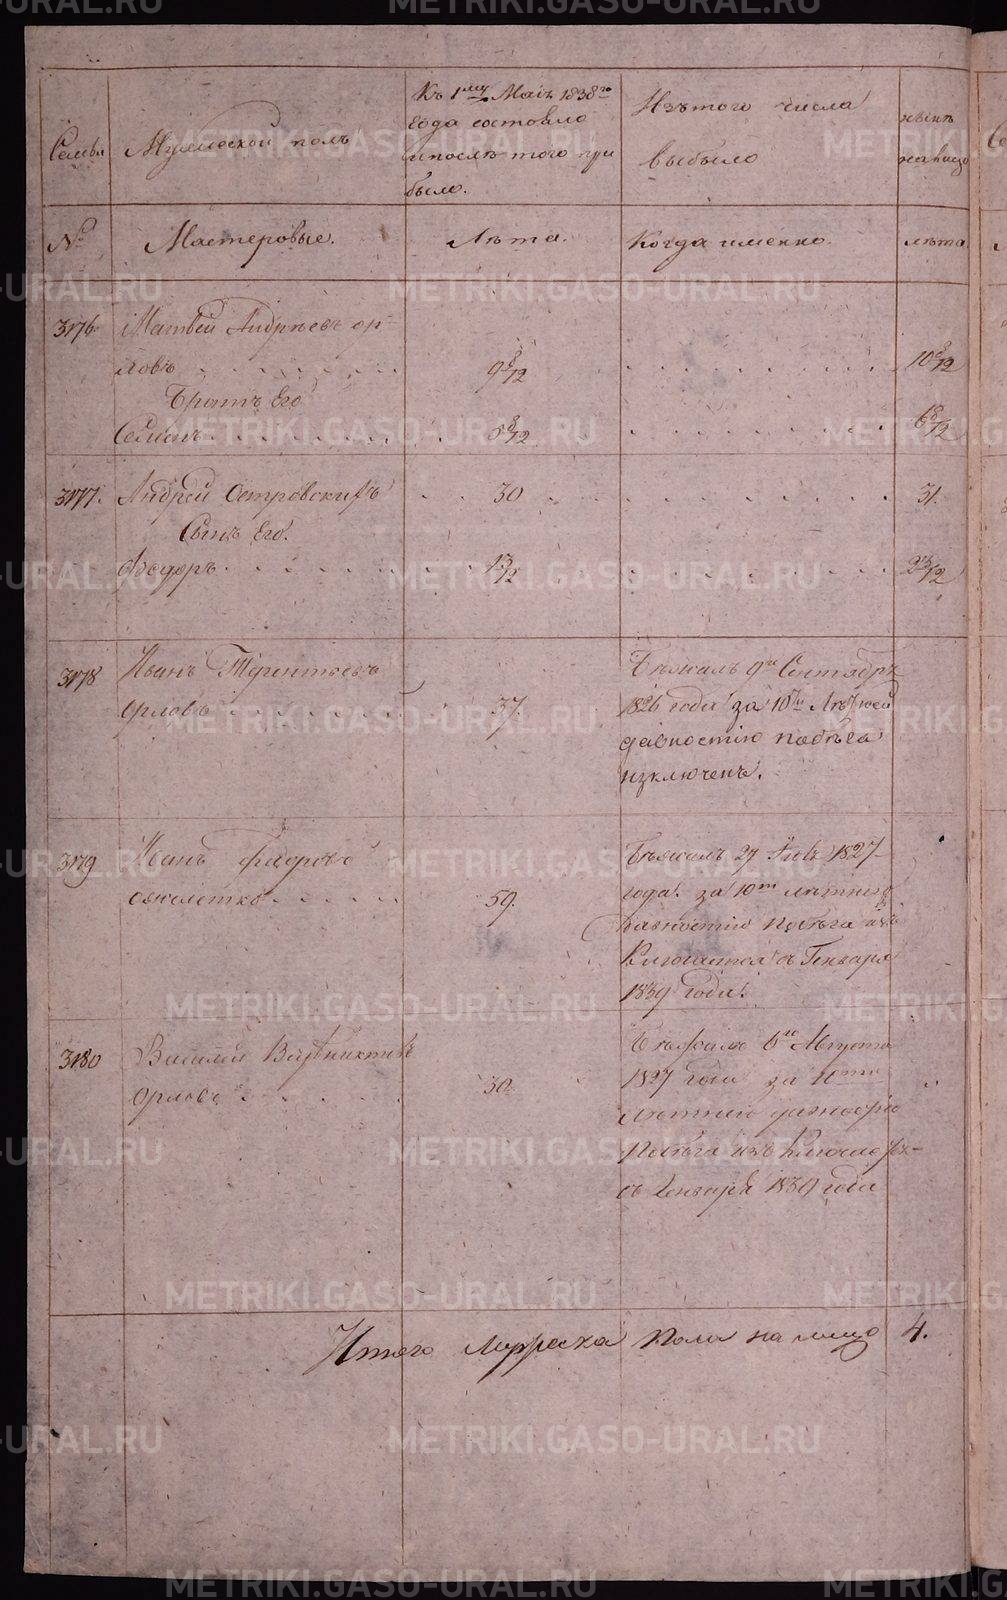 METRIKI.GASO-URAL.RU
Семьи
Мужеской полъ
Къ 1му Маія 1838го
года состояло
и послѣ того при
было.
Изъ того числа
выбыло
нынѣ
на лицо
№
Мастеровые.
Лѣта.
Когда именно.
лѣта
3176.
Матвей Андрѣевъ ор-
ловъ
9 8/12
10 8/12
Братъ Его
Семенъ
5 8/12
6 8/12
3177.
Андрей Островскихъ
30
31.
Сынъ Его.
Федоръ
1 3/12
2 3/12
3178
Иванъ Терентьевъ
Орловъ
37.
Бѣжалъ 9го Сентября
1826 года за 10ти Лѣтней
давностію побѣга
изключенъ.
3179
Иванъ
59.
Бѣжалъ 27 1827
года. за 10ти лѣтнею
давностію побѣга изъ
Ключается съ Генваря
1839 года.
3180
Василей
Орловъ
30.
Бѣжалъ 6го Августа
1827 года за 10ти
лѣтнею давностію
побѣга изъ
съ Генваря 1839 года
Итого Мужеска пола на лицо 4.